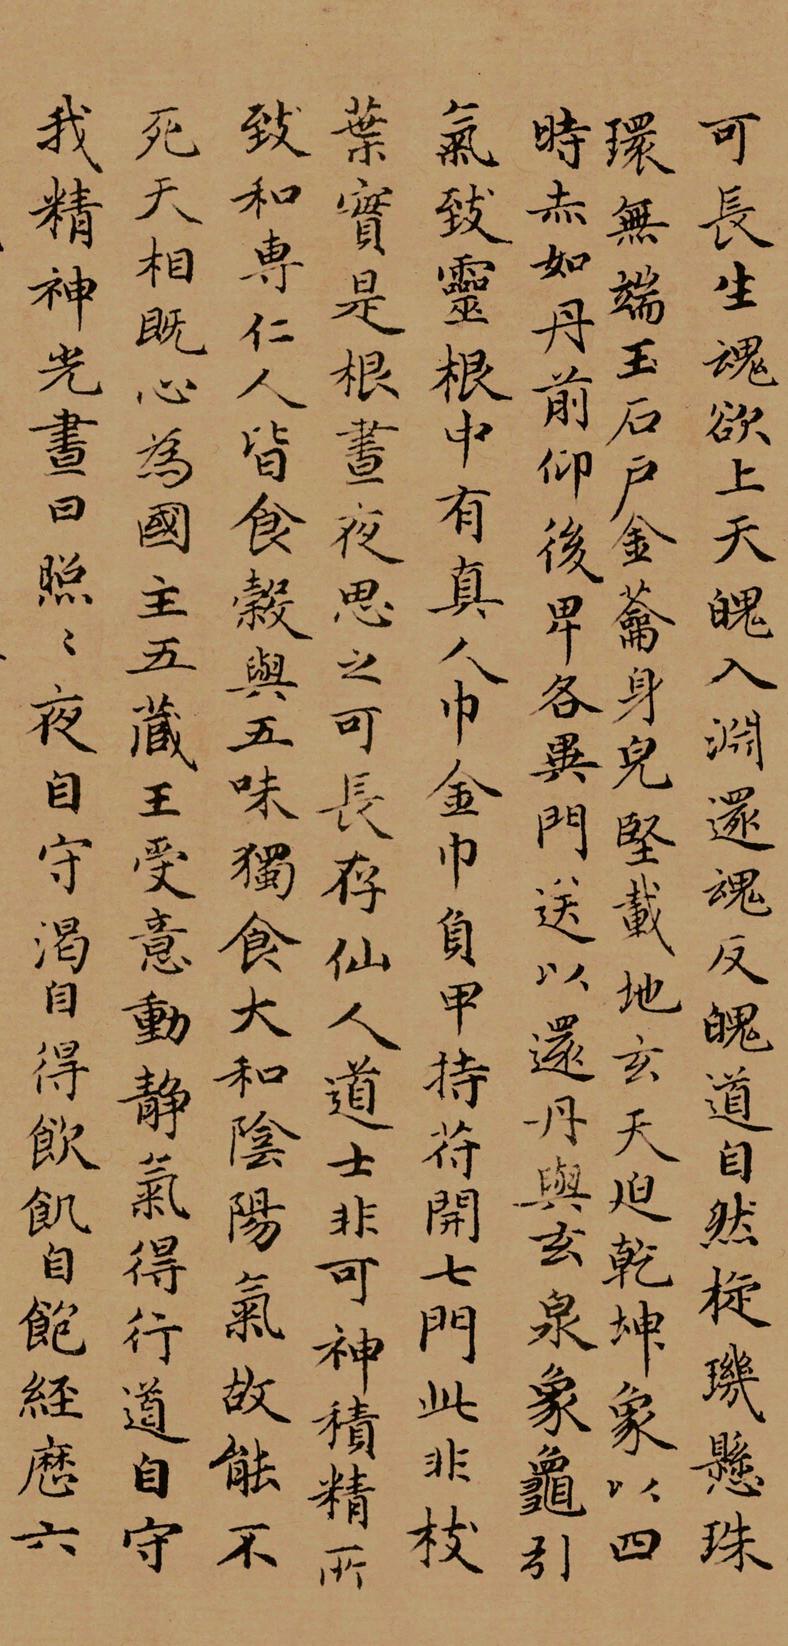 可長生魂欲上天魄入淵還魂反魄道自然椗璣懸珠
環無端玉石戶金蘥身皃堅載地玄天迫乾坤象以四
時赤如丹前仰後卑各異門送以還丹與玄泉象龜引
氣致靈根中有真人巾金巾負甲持苻開七門此非枝
葉實是根晝夜思之可長存仙人道士非可神積精所
致和専仁人皆食穀與五味獨食大和陰陽氣故能不
死天相既心為國主五藏王受意動静氣得行道自守
我精神光晝日照〻夜自守渴自得飲飢自飽経歷六